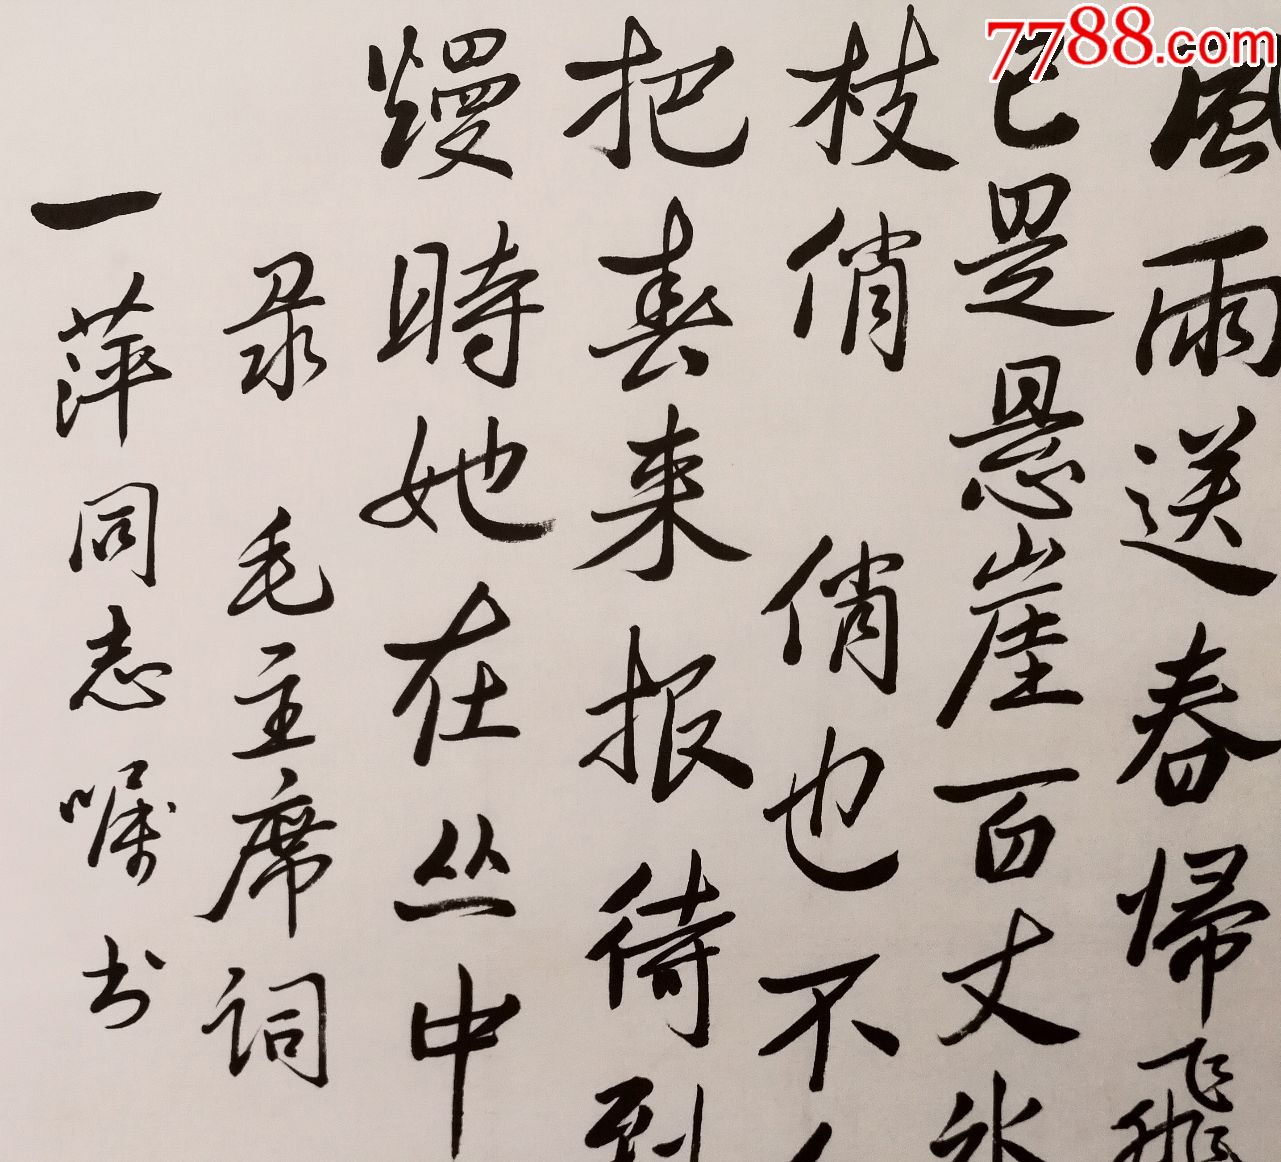 7788.com
風雨送春歸飛
已是悬崖百丈冰
枝俏 俏也不
把春来报待到
熳時她在丛中
录 毛主席词
一萍同志嘱书